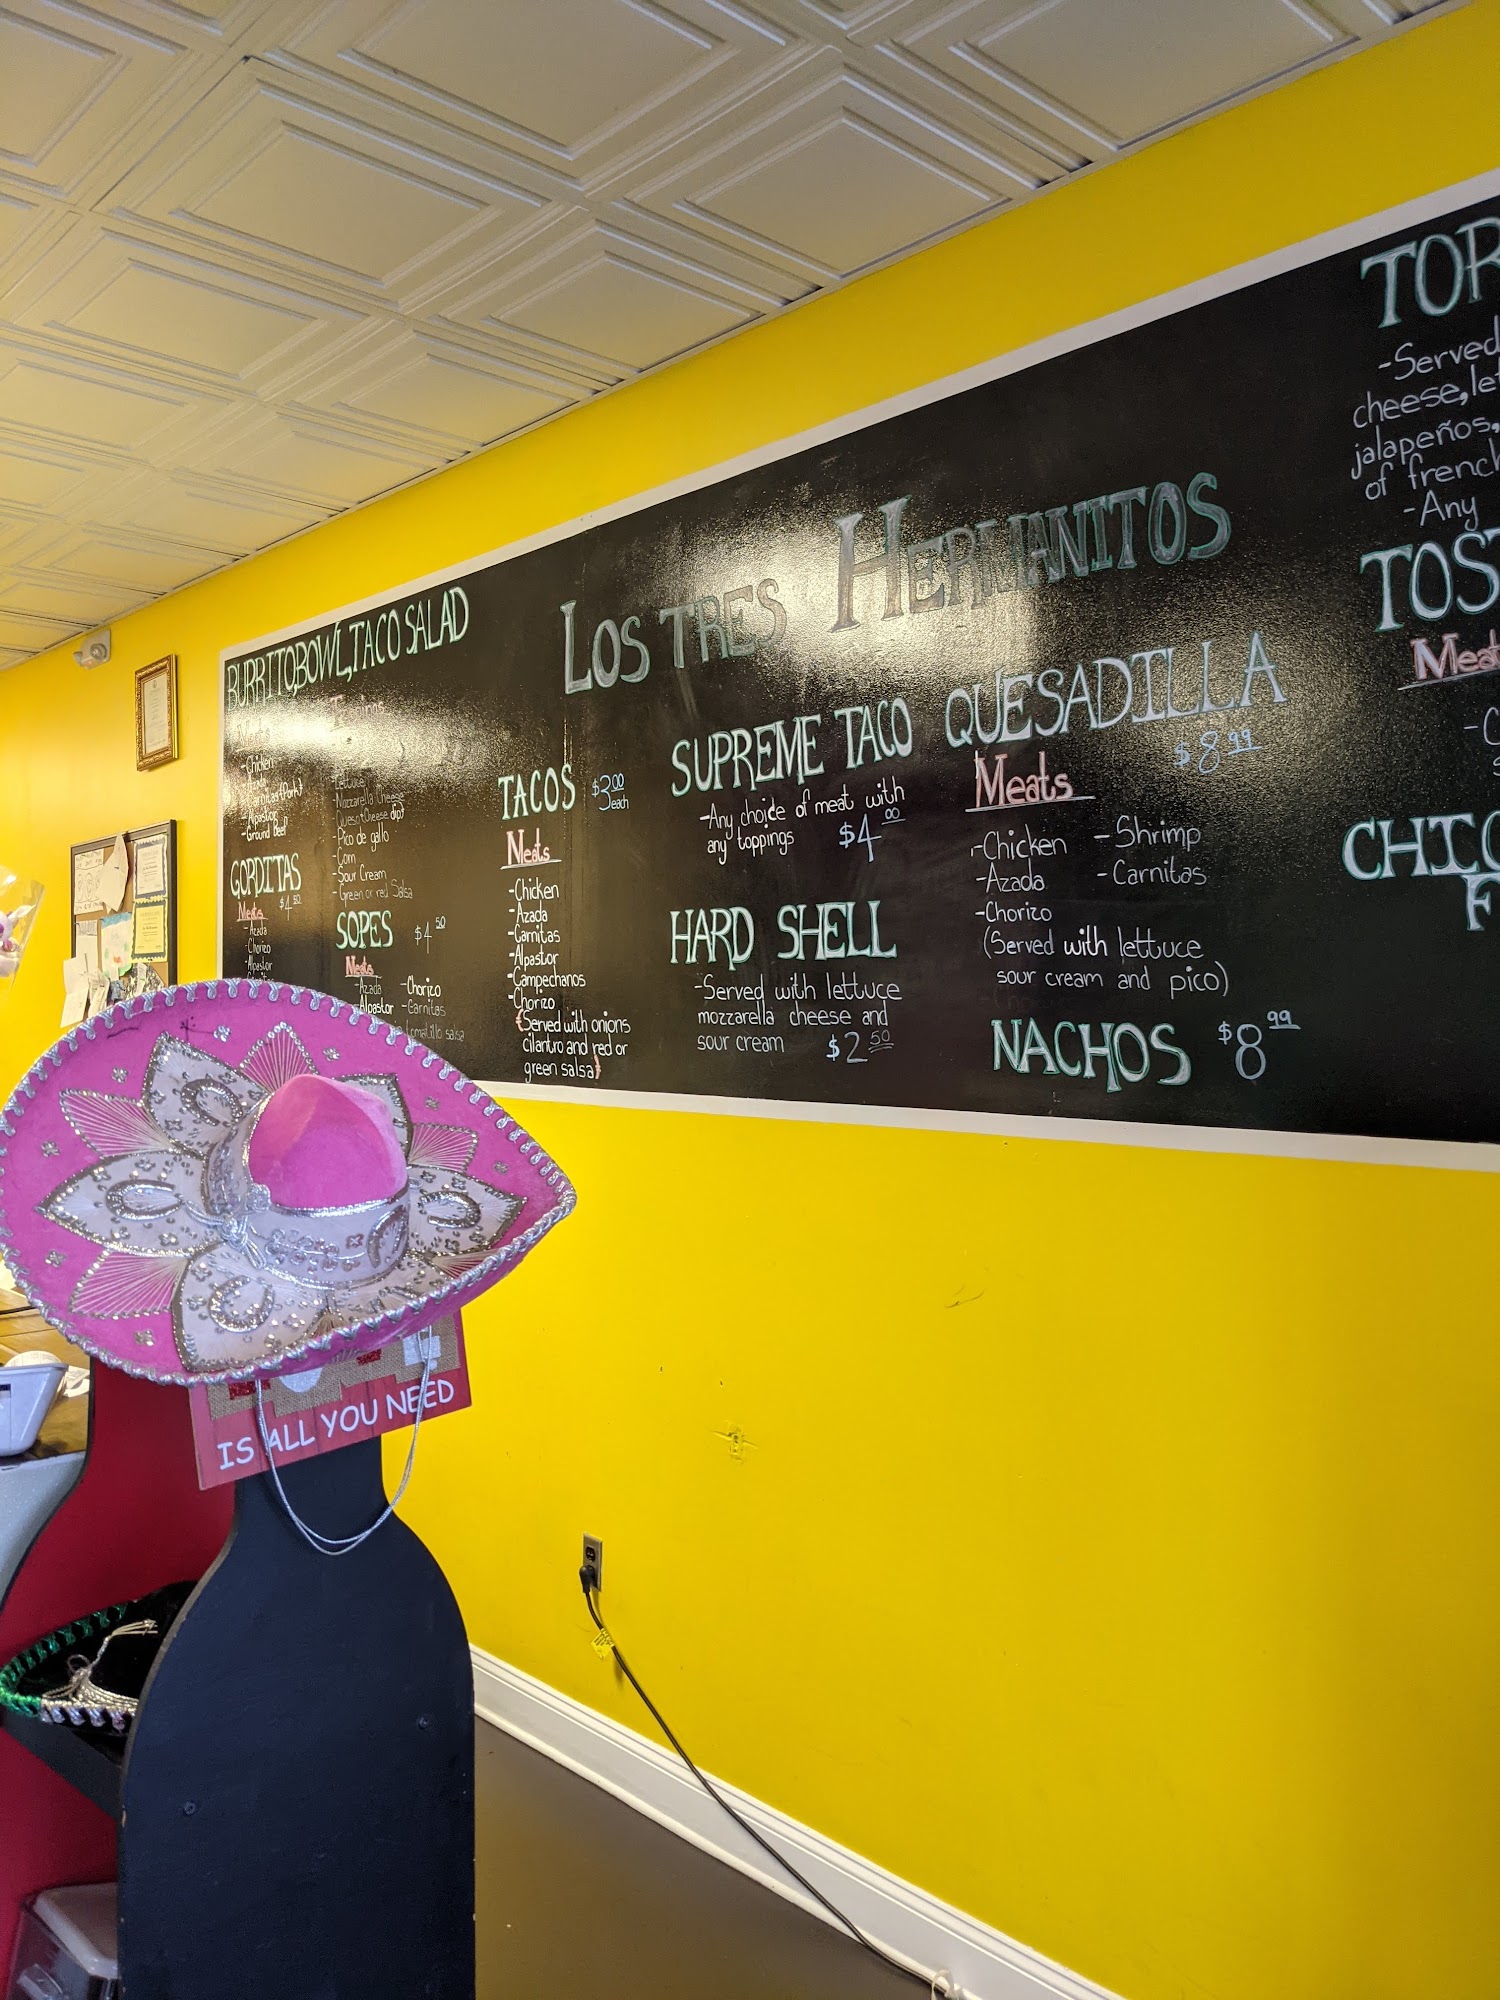 BURRITO,BOWL,TACO SALAD
-Chicken
-Carnitas (Pork)
-Alpastor
-Ground Beef
-Lettuce
-Mozzarella Cheese
-Queso (Cheese dip)
-Pico de gallo
-Corn
-Sour Cream
-Green or red Salsa
GORDITAS
$4.50
Meats
-Azada
-Chorizo
-Alpastor
SOPES $4 50
Meats
-Azada -Chorizo
-Alpastor -Carnitas
salsa
LOS TRES HERMANITOS
TACOS $3 00 each
Meats
-Chicken
-Azada
-Carnitas
-Alpastor
-Campechanos
-Chorizo
(Served with onions
cilantro and red or
green salsa)
SUPREME TACO
-Any choice of meat with
any toppings $4 00
HARD SHELL
-Served with lettuce
mozzarella cheese and
sour cream $2 50
QUESADILLA
$8 99
Meats
-Chicken -Shrimp
-Azada -Carnitas
-Chorizo
(Served with lettuce
sour cream and pico)
NACHOS $8 99
TOR
-Served
cheese, let
jalapeños,
of french
-Any
TOST
Meat
CHIC
F
IS ALL YOU NEED